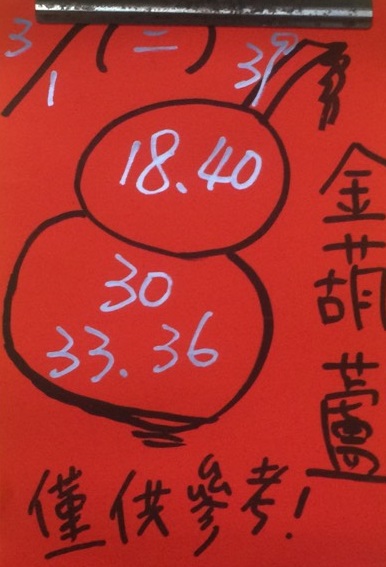 3/1 (二) 39
18.40
30
33.36
金葫蘆
僅供參考!